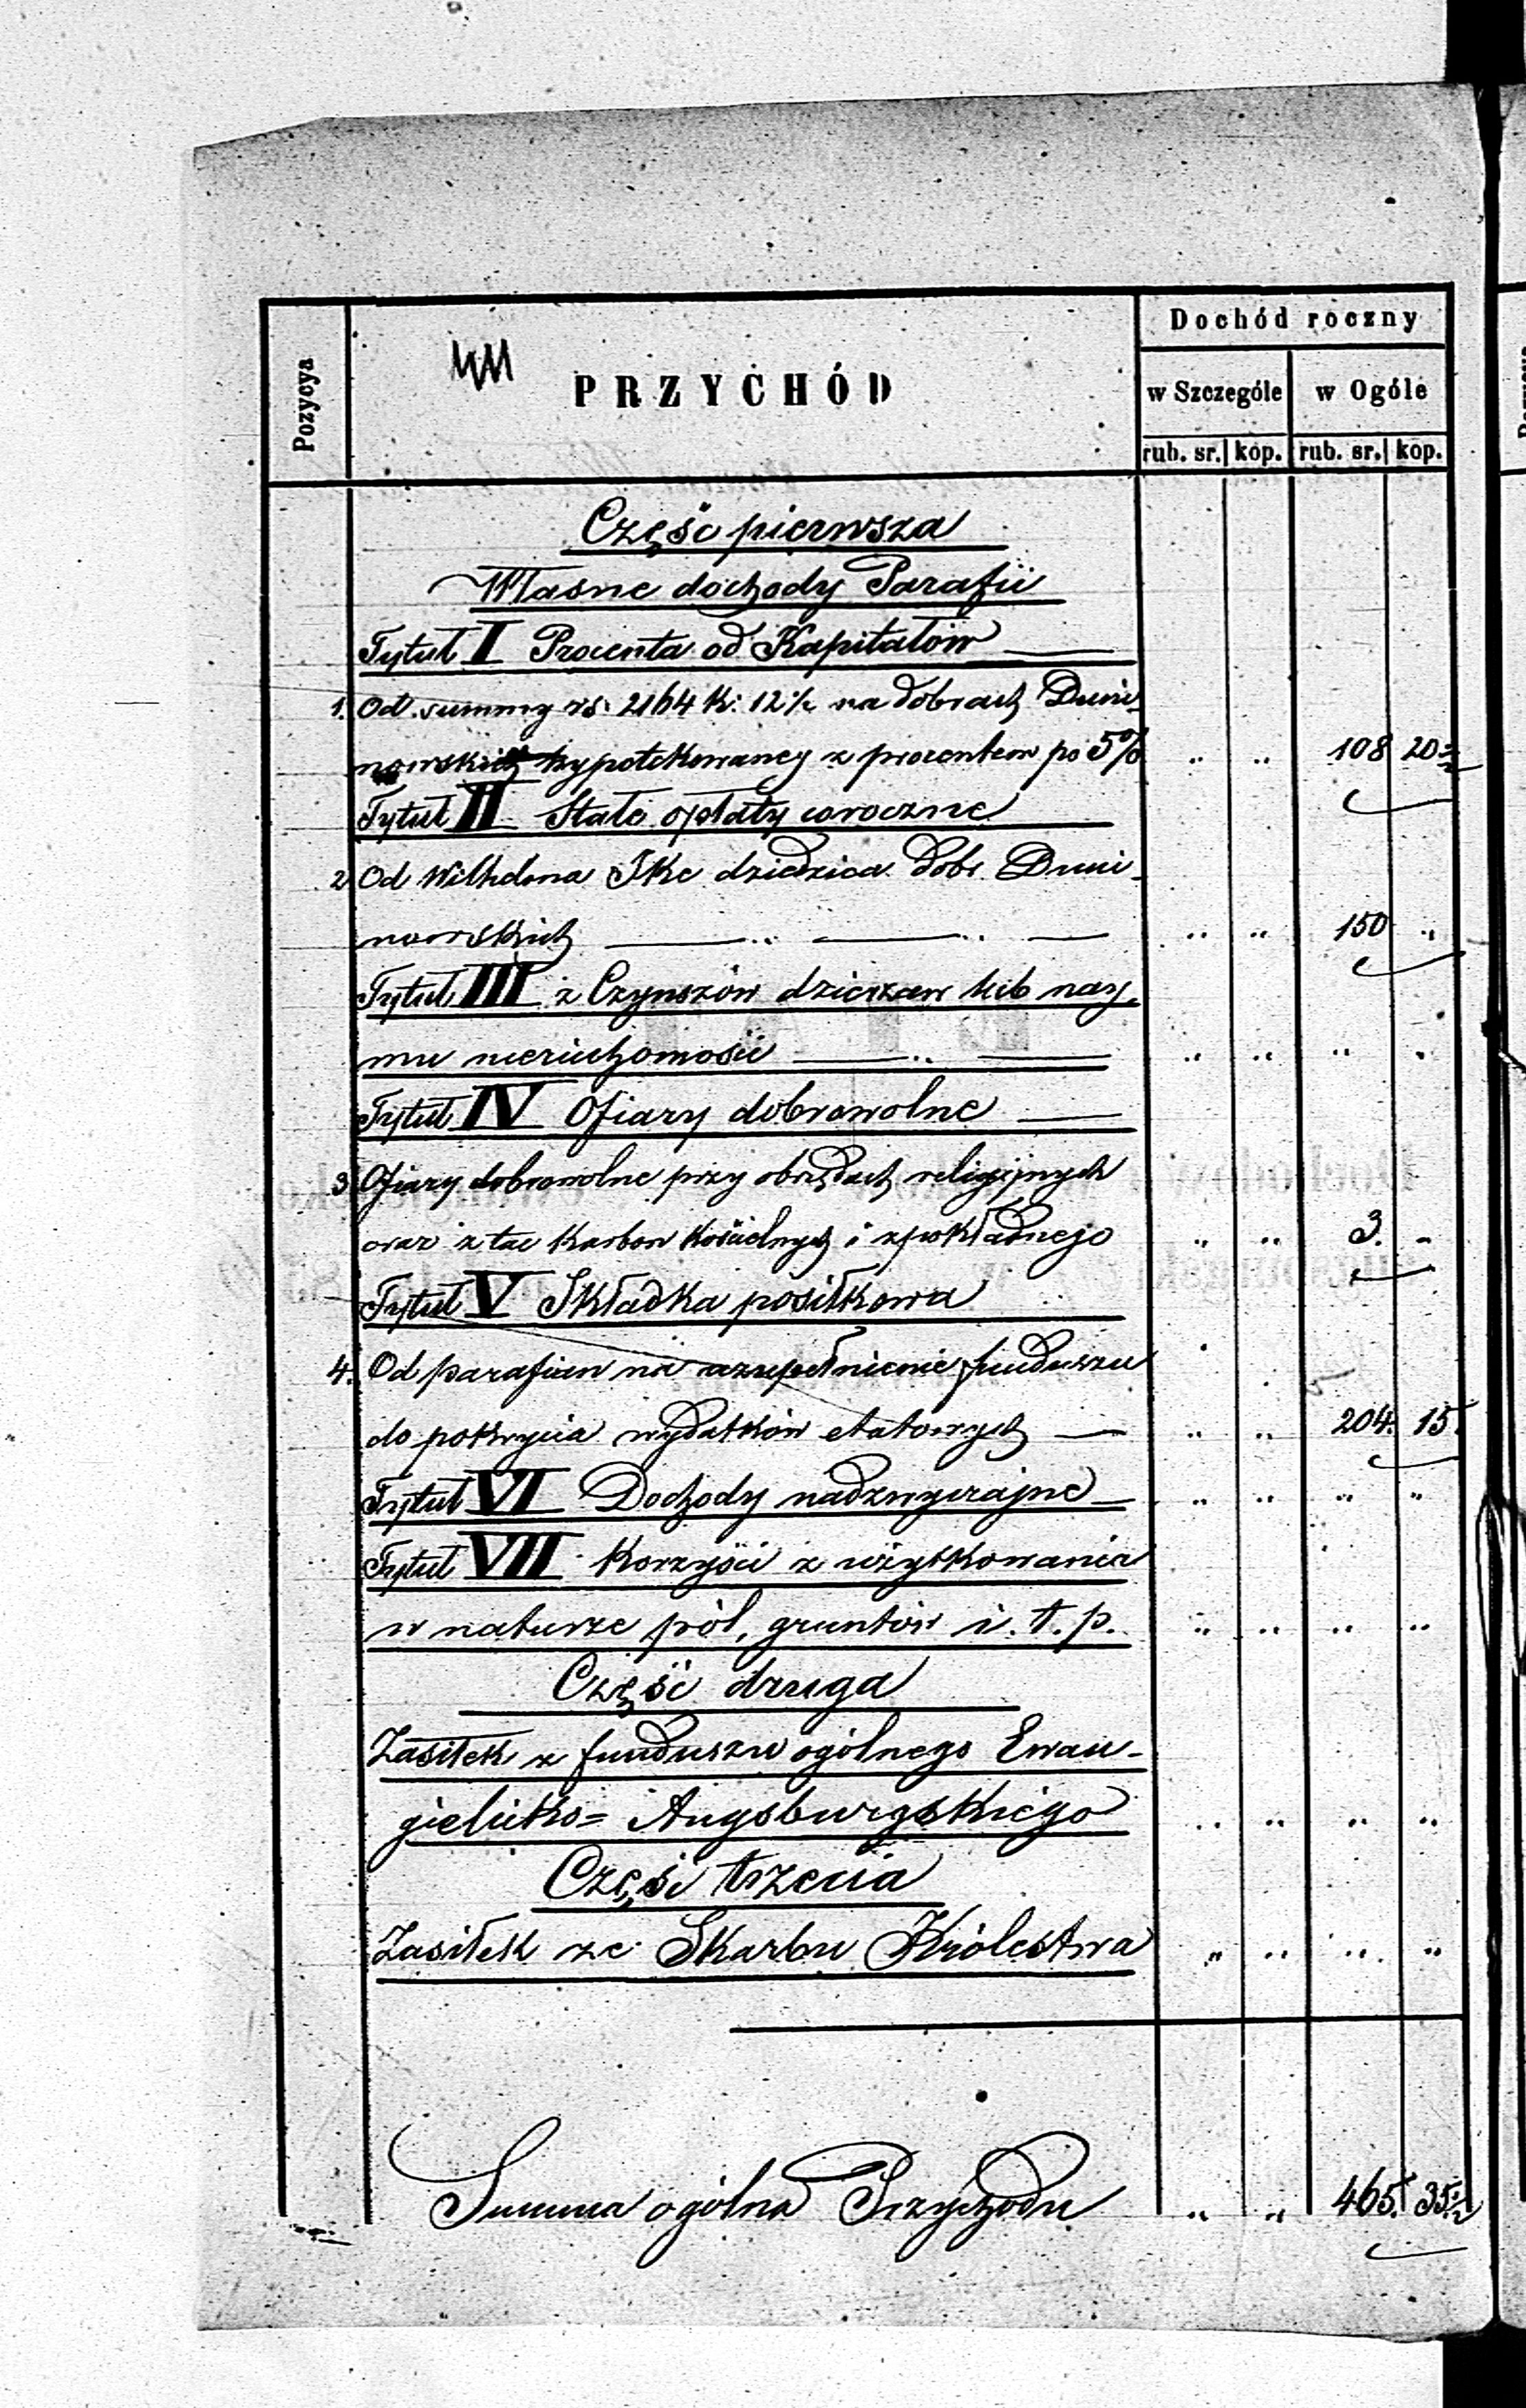 Pozycya
PRZYCHÓD
Dochód roczny
w Szczególe w Ogóle
rub. sr. kop. rub. sr. kop.
Część pierwsza
Własne dochody Parafii
Tytuł I Procenta od Kapitałów
1. Od summy rs: 2164 k: 12½ na dobrach Duni-
nowskich hypotekowaney z procentem po 5% " " 108 20½
Tytuł II Stałe opłaty coroczne
2 Od Wilhelma Ike dziedzica dobr Duni-
nowskich " " 150 "
Tytuł III z Czynszów dzierzaw lub nay-
mu nieruchomości " " " "
Tytuł IV Ofiary dobrowolne
3 Ofiary dobrowolne przy obrzędach religijnych
oraz z tac karbon Kościelnych i z pokładnego " " 3. -
Tytuł V Składka posiłkowa
4. Od parafian na uzupełnienie funduszu
do pokrycia wydatków etatowych " " 204. 15
Tytuł VI Dochody nadzwyczajne " " " "
Tytuł VII Korzyści z użytkowania
w naturze pól, gruntów i. t. p. " " " "
Część druga
Zasiłek z funduszu ogólnego Ewan-
gielicko= Augsburgskiego " " " "
Część trzecia
Zasiłek ze Skarbu Królestwa " " " "
Summa ogólna Przychodu " " 465. 35½